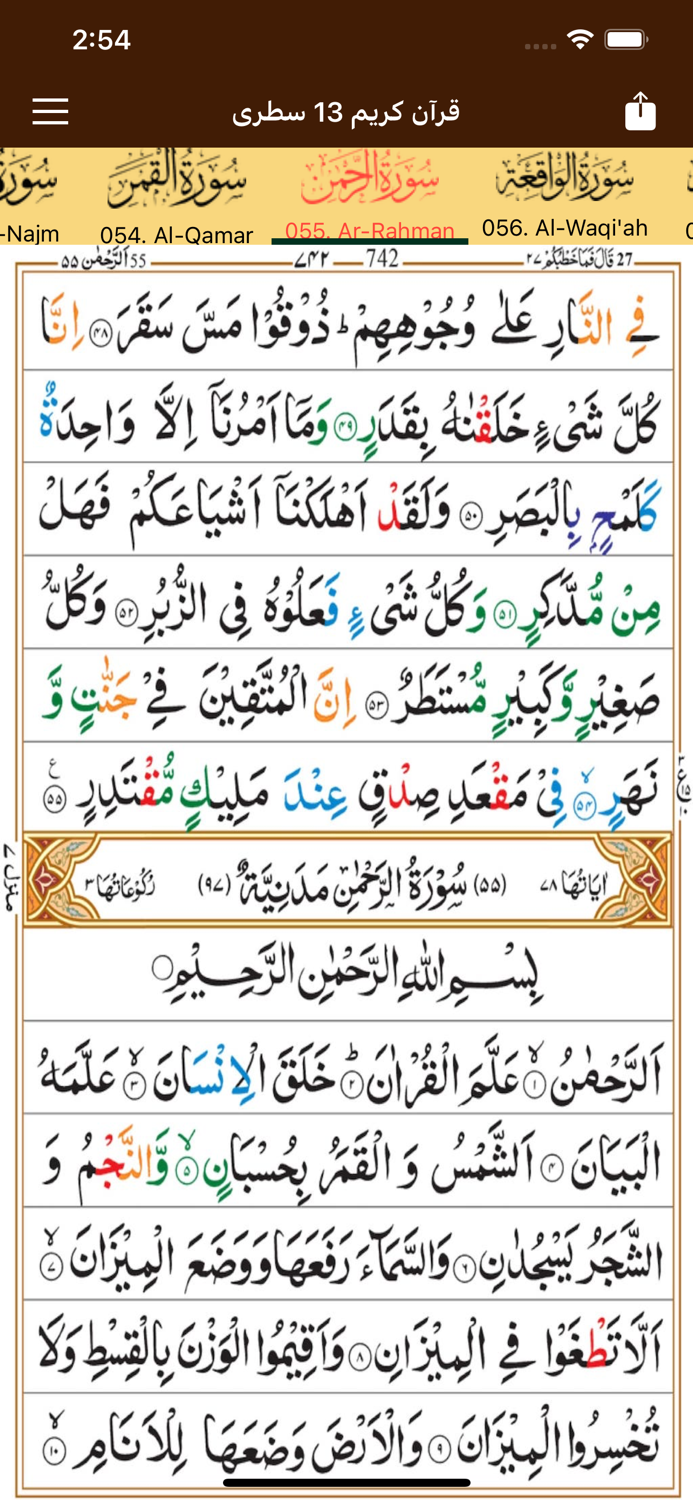 2:54
قرآن کریم 13 سطری
سُورَةُ الْقَمَر
سُورَةُ الرَّحْمٰن
سُورَةُ الْوَاقِعَة
-Najm
054. Al-Qamar
055. Ar-Rahman
056. Al-Waqi'ah
27 قَالَ فَمَا خَطْبُكُمْ ۲۷
742 ۷۴۲
55 اَلرَّحْمٰن ۵۵
فِي النَّارِ عَلٰى وُجُوْهِهِمْ ؕ ذُوْقُوْا مَسَّ سَقَرَ ﴿۴۸﴾ اِنَّا
كُلَّ شَىْءٍ خَلَقْنٰهُ بِقَدَرٍ ﴿۴۹﴾ وَمَاۤ اَمْرُنَاۤ اِلَّا وَاحِدَةٌ
كَلَمْحٍۭ بِالْبَصَرِ ﴿۵۰﴾ وَلَقَدْ اَهْلَكْنَاۤ اَشْيَاعَكُمْ فَهَلْ
مِنْ مُّدَّكِرٍ ﴿۵۱﴾ وَكُلُّ شَىْءٍ فَعَلُوْهُ فِى الزُّبُرِ ﴿۵۲﴾ وَكُلُّ
صَغِيْرٍ وَّكَبِيْرٍ مُّسْتَطَرٌ ﴿۵۳﴾ اِنَّ الْمُتَّقِيْنَ فِيْ جَنّٰتٍ وَّ
نَهَرٍ ۙ﴿۵۴﴾ فِيْ مَقْعَدِ صِدْقٍ عِنْدَ مَلِيْكٍ مُّقْتَدِرٍ ﴿۵۵﴾ ع
منزل ۷
اٰيَاتُهَا ۷۸ (۵۵) سُوْرَةُ الرَّحْمٰنِ مَدَنِيَّةٌ (۹۷) رُكُوْعَاتُهَا ۳
بِسْمِ اللّٰهِ الرَّحْمٰنِ الرَّحِيْمِ
اَلرَّحْمٰنُ ۙ﴿۱﴾ عَلَّمَ الْقُرْاٰنَ ؕ﴿۲﴾ خَلَقَ الْاِنْسَانَ ۙ﴿۳﴾ عَلَّمَهُ
الْبَيَانَ ﴿۴﴾ اَلشَّمْسُ وَ الْقَمَرُ بِحُسْبَانٍ ۙ﴿۵﴾ وَّالنَّجْمُ وَ
الشَّجَرُ يَسْجُدٰنِ ﴿۶﴾ وَالسَّمَآءَ رَفَعَهَا وَوَضَعَ الْمِيْزَانَ ۙ﴿۷﴾
اَلَّا تَطْغَوْا فِي الْمِيْزَانِ ﴿۸﴾ وَاَقِيْمُوا الْوَزْنَ بِالْقِسْطِ وَلَا
تُخْسِرُوا الْمِيْزَانَ ﴿۹﴾ وَالْاَرْضَ وَضَعَهَا لِلْاَنَامِ ۙ﴿۱۰﴾